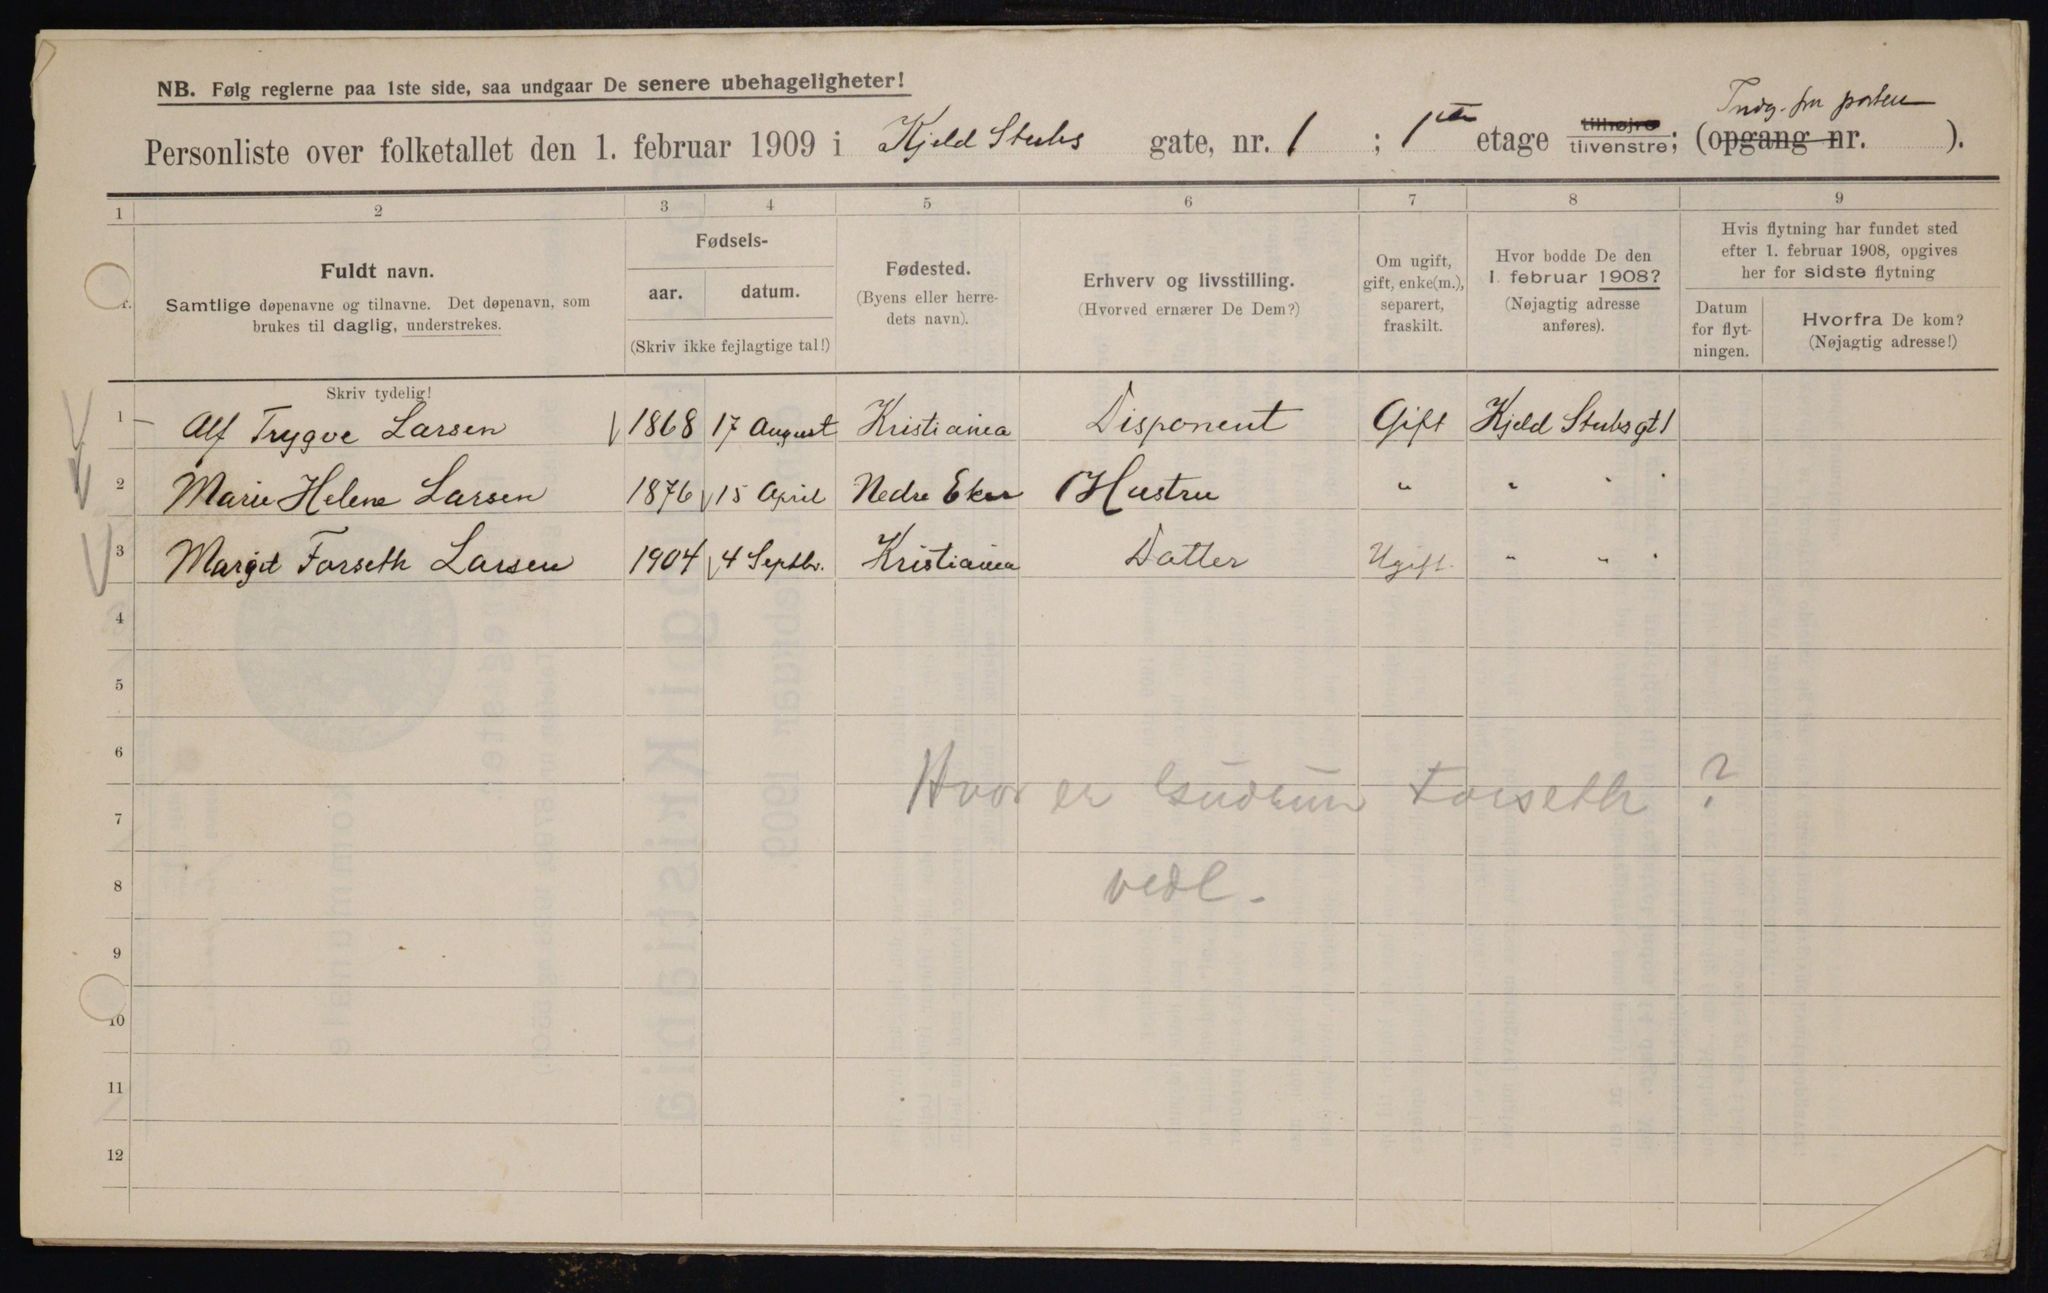 NB. Følg reglerne paa 1ste side, saa undgaar De senere ubehageligheter!
Indg. fra porten
Personliste over folketallet den 1. februar 1909 i Kjeld Stubs gate, nr. 1 ; 1ste etage tilhøjre tilvenstre; (opgang nr. ).
1 2 3 4 5 6 7 8 9
Fuldt navn.
Samtlige døpenavne og tilnavne. Det døpenavn, som
brukes til daglig, understrekes.
Fødsels-
aar. datum.
(Skriv ikke fejlagtige tal!)
Fødested.
(Byens eller herre-
dets navn).
Erhverv og livsstilling.
(Hvorved ernærer De Dem?)
Om ugift,
gift, enke(m.),
separert,
fraskilt.
Hvor bodde De den
1. februar 1908?
(Nøjagtig adresse
anføres).
Hvis flytning har fundet sted
efter 1. februar 1908, opgives
her for sidste flytning
Datum
for flyt-
ningen.
Hvorfra De kom?
(Nøjagtig adresse!)
Skriv tydelig!
1 Alf Trygve Larsen 1868 17 August Kristiania Disponent Gift Kjeld Stubsgt 1
2 Marie Helene Larsen 1876 15 April Nedre Eker Hustru " " " "
3 Margit Forseth Larsen 1904 4 Septbr. Kristiania Datter Ugift. " " "
4
5
6
Hvor er Gudrun Forseth ?
7
8 vedl.
9
10
11
12